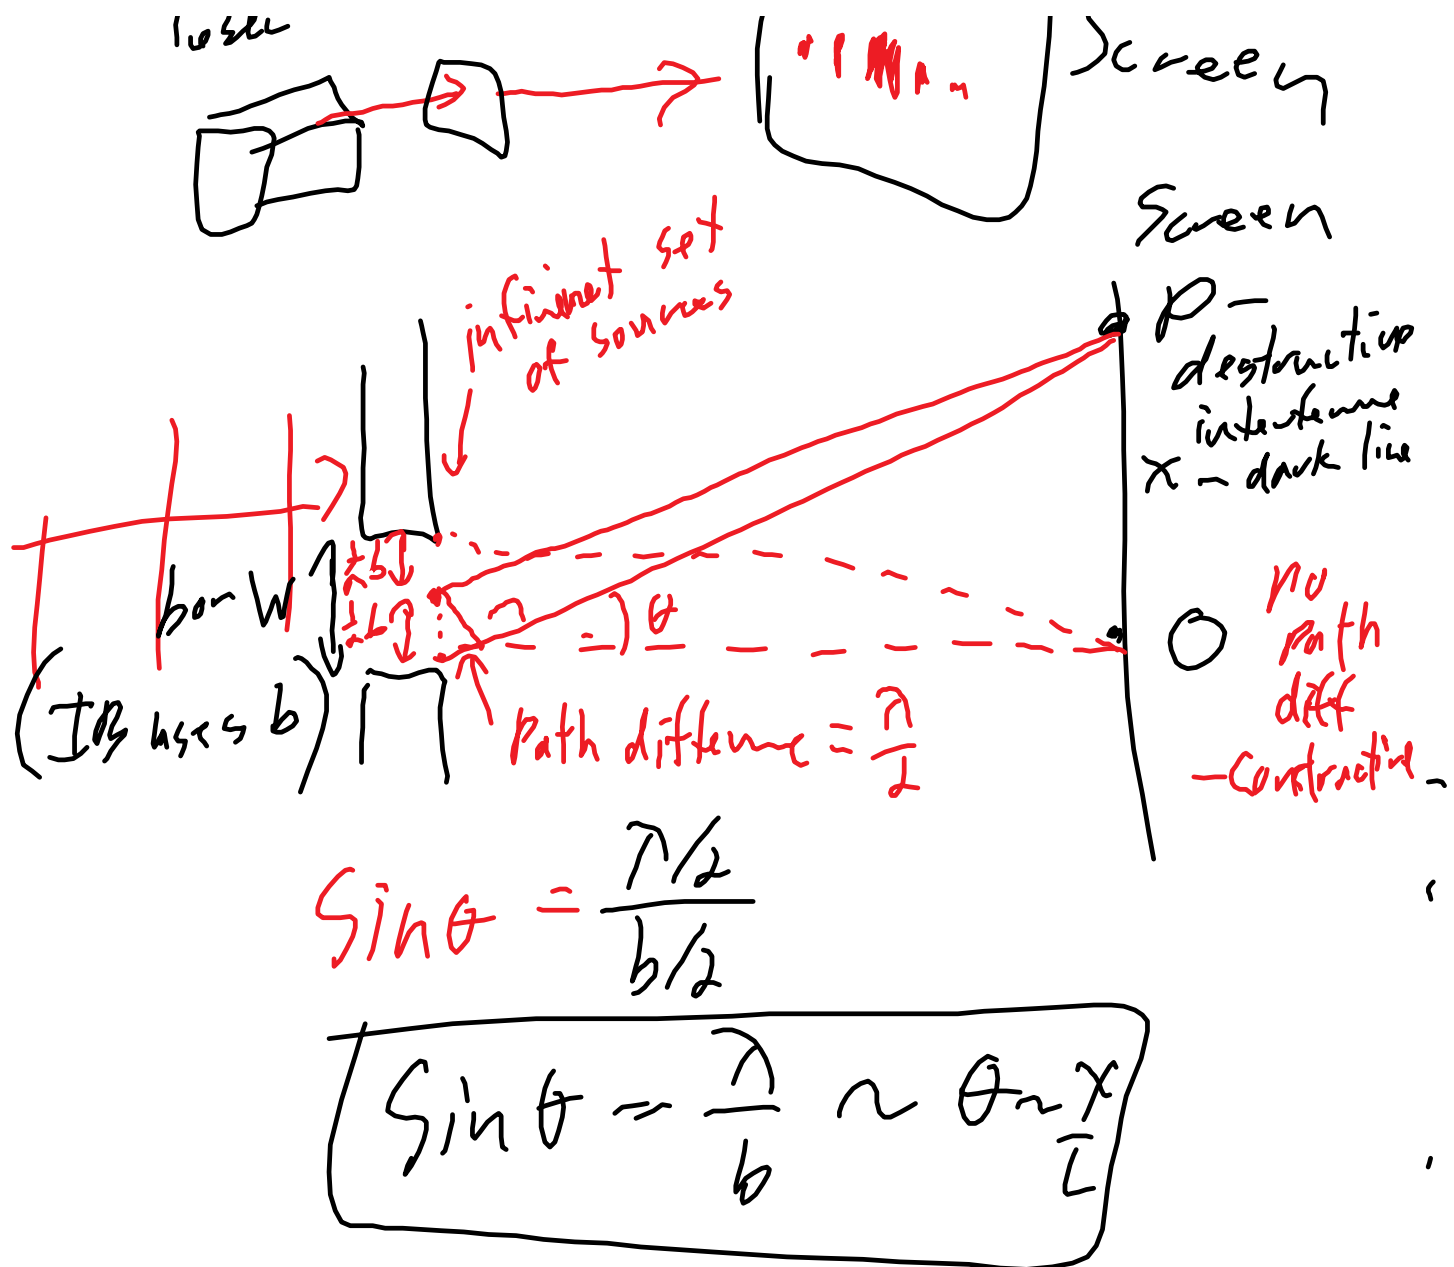 laser
Screen
Screen
infininet set
of sources
P -
destructive
interference
x - dark line
b or W
½b
½b
θ
O
no
path
diff
- constructive
(IB uses b)
Path difference = λ/2
Sinθ = λ/2 / b/2
Sinθ = λ/b ~ θ ~ x/L